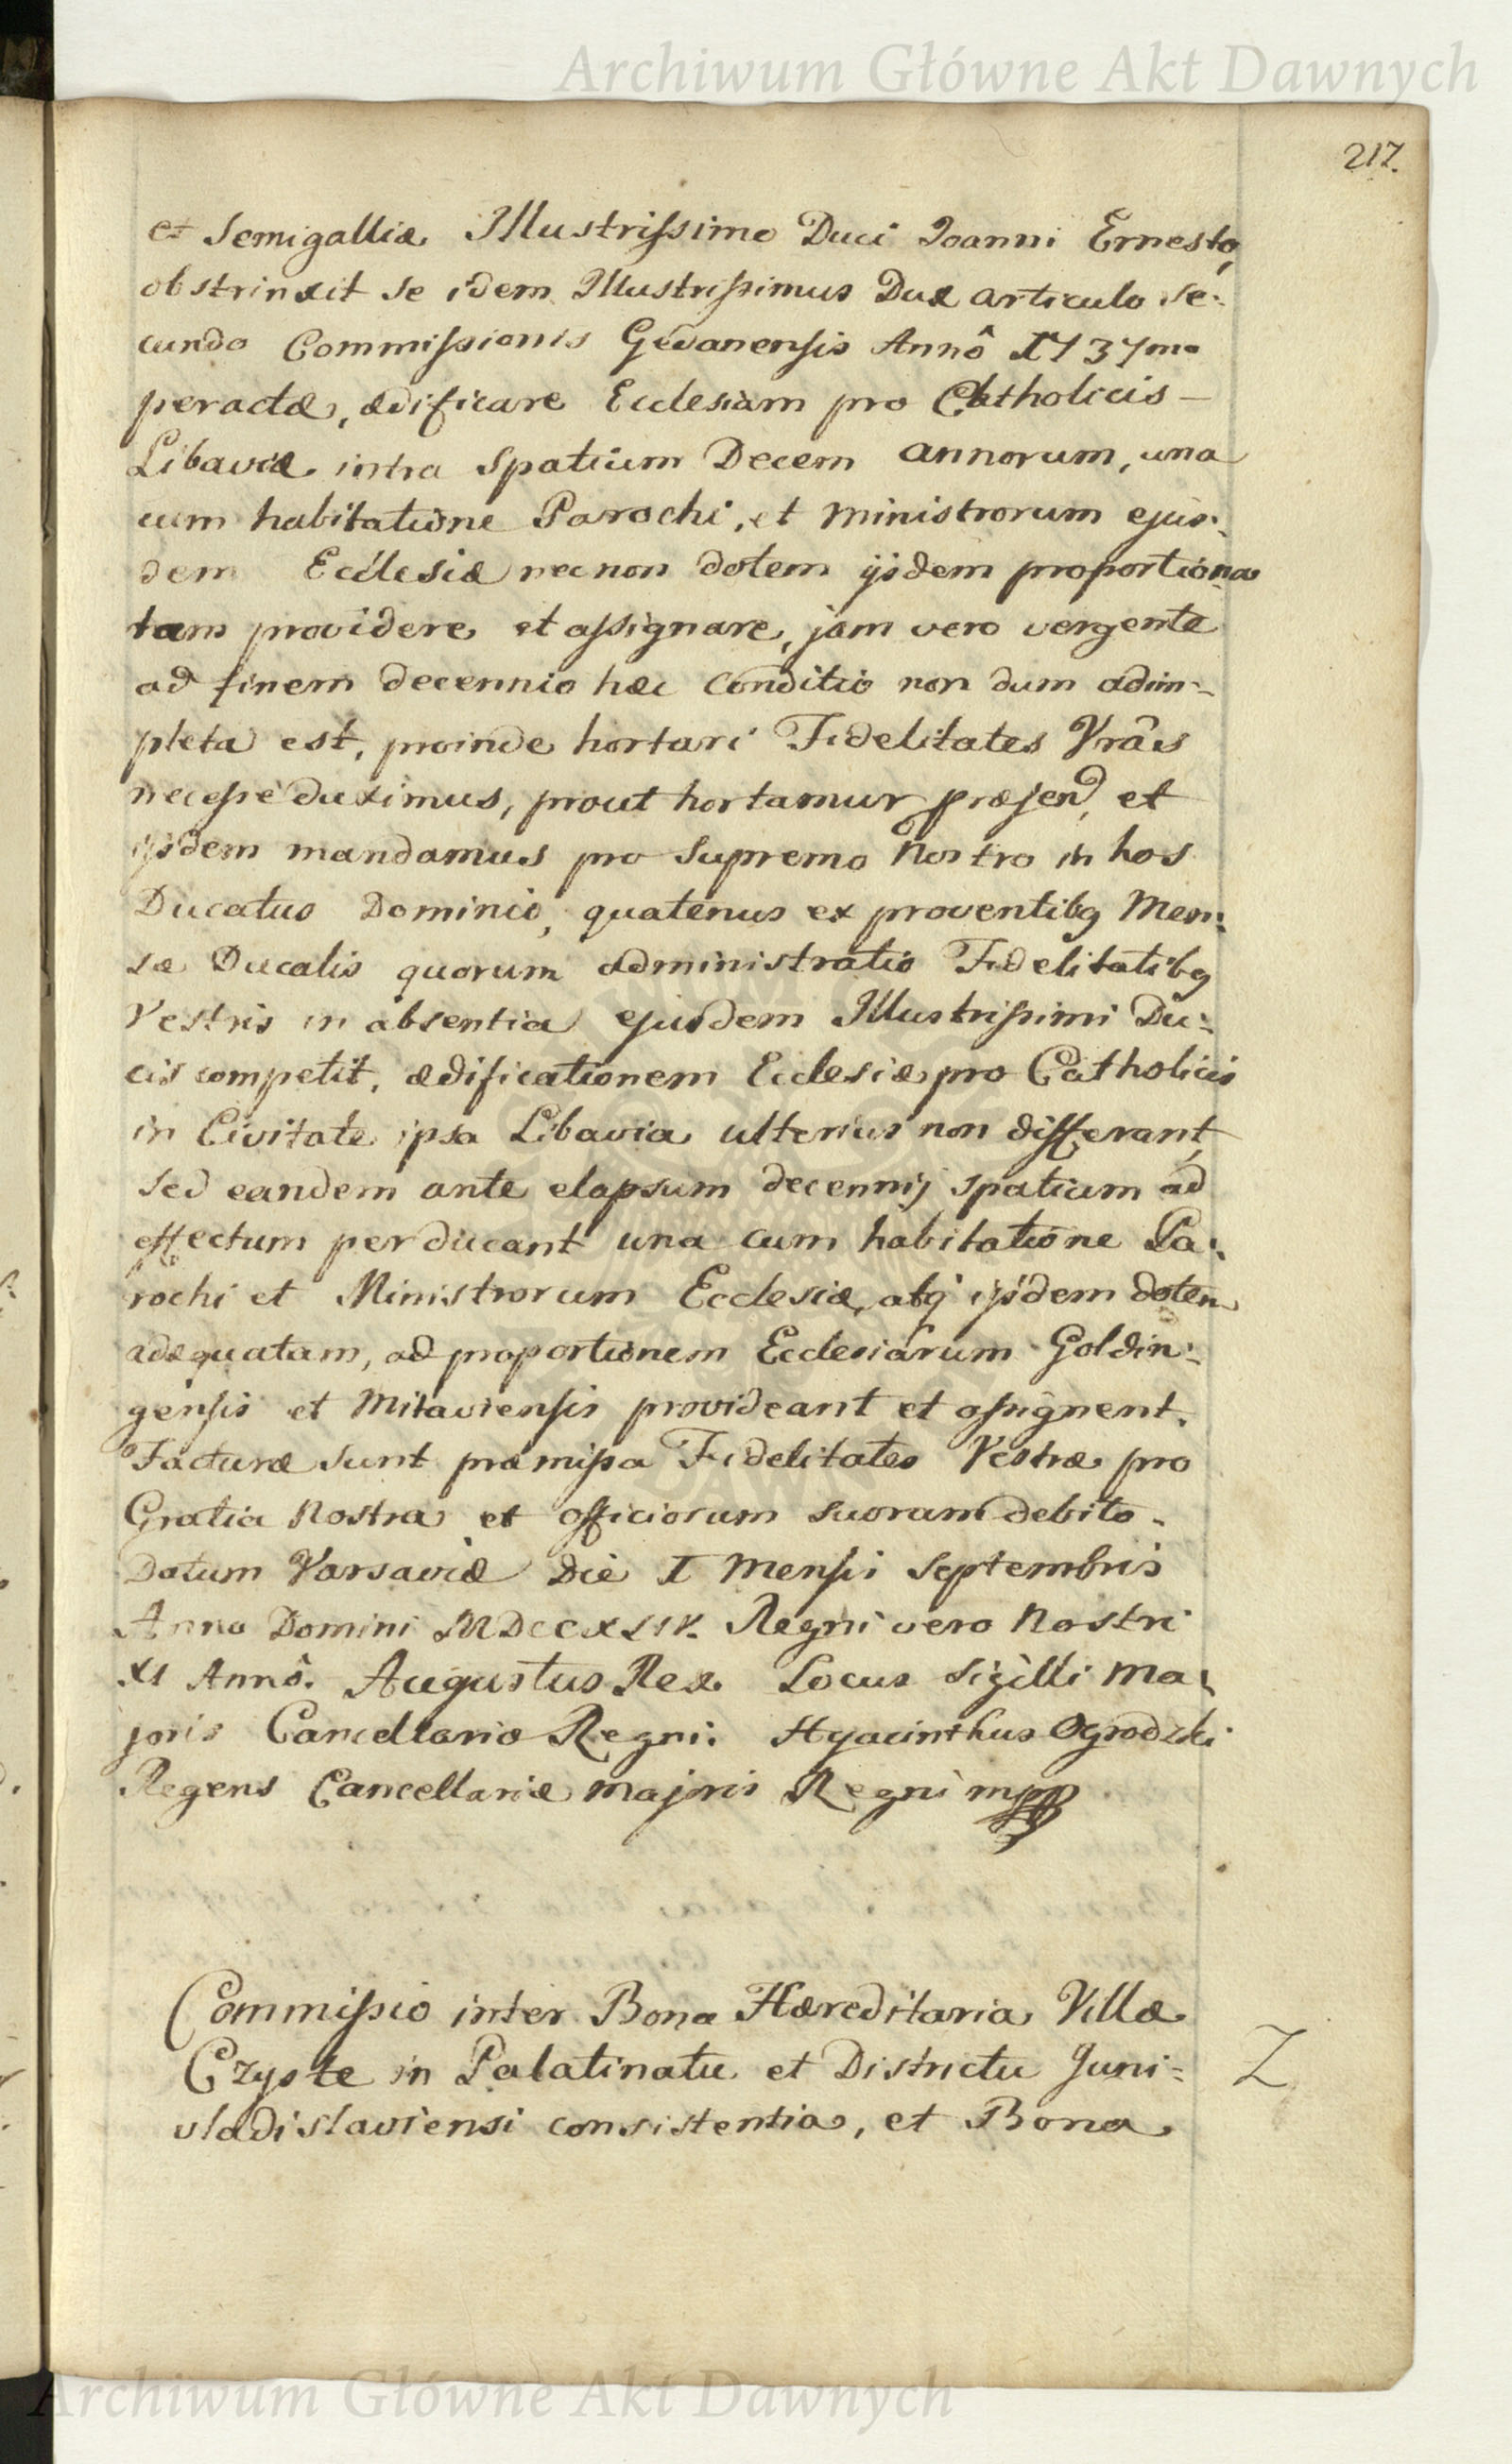 Archiwum Główne Akt Dawnych
217.
et Semigalliæ Illustrissimo Duci Joanni Ernesto,
obstrinxit se idem Illustrissimus Dux articulo se-
cundo Commissionis Gedanensis Annô 1737mo
peractæ, ædificare Ecclesiam pro Catholicis –
Libaviæ intra Spatium Decem annorum, una
cum habitatione Parochi, et Ministrorum ejus-
dem Ecclesiæ necnon dotem ijsdem proportiona
tam providere et assignare, jam vero vergente
ad finem decennio hæc Conditio non dum adim-
pleta est, proinde hortari Fidelitates Vrâs
necesse duximus, prout hortamur præsen, et
ijsdem mandamus pro Supremo Nostro in hos
Ducatus Dominio, quatenus ex proventibq Men-
sæ Ducalis quorum administratio Fidelitatibq
Vestris in absentia ejusdem Illustrissimi Du-
cis competit, ædificationem Ecclesiæ pro Catholicis
in Civitate ipsa Libavia ulterius non differant,
sed eandem ante elapsum decennij spatium ad
effectum perducant una cum habitatione Pa-
rochi et Ministrorum Ecclesiæ, atq ijsdem dotem
adæquatam, ad proportionem Ecclesiarum Goldin-
gensis et Mitaviensis provideant et assignent.
Facturæ sunt præmissa Fidelitates Vestræ pro
Gratia Nostra et officiorum suorum debito.
Datum Varsaviæ Die I Mensis Septembris
Anno Domini MDCCXLIV. Regni vero Nostri
XI Annô. Augustus Rex. Locus Sigilli Ma-
joris Cancellariæ Regni. Hyacinthus Ogrodzki
Regens Cancellariæ majoris Regni mpp
Commissio inter Bona Hæreditaria Villæ
Czyste in Palatinatu et Districtu Juni-
vladislaviensi consistentia, et Bona
Z
Archiwum Główne Akt Dawnych